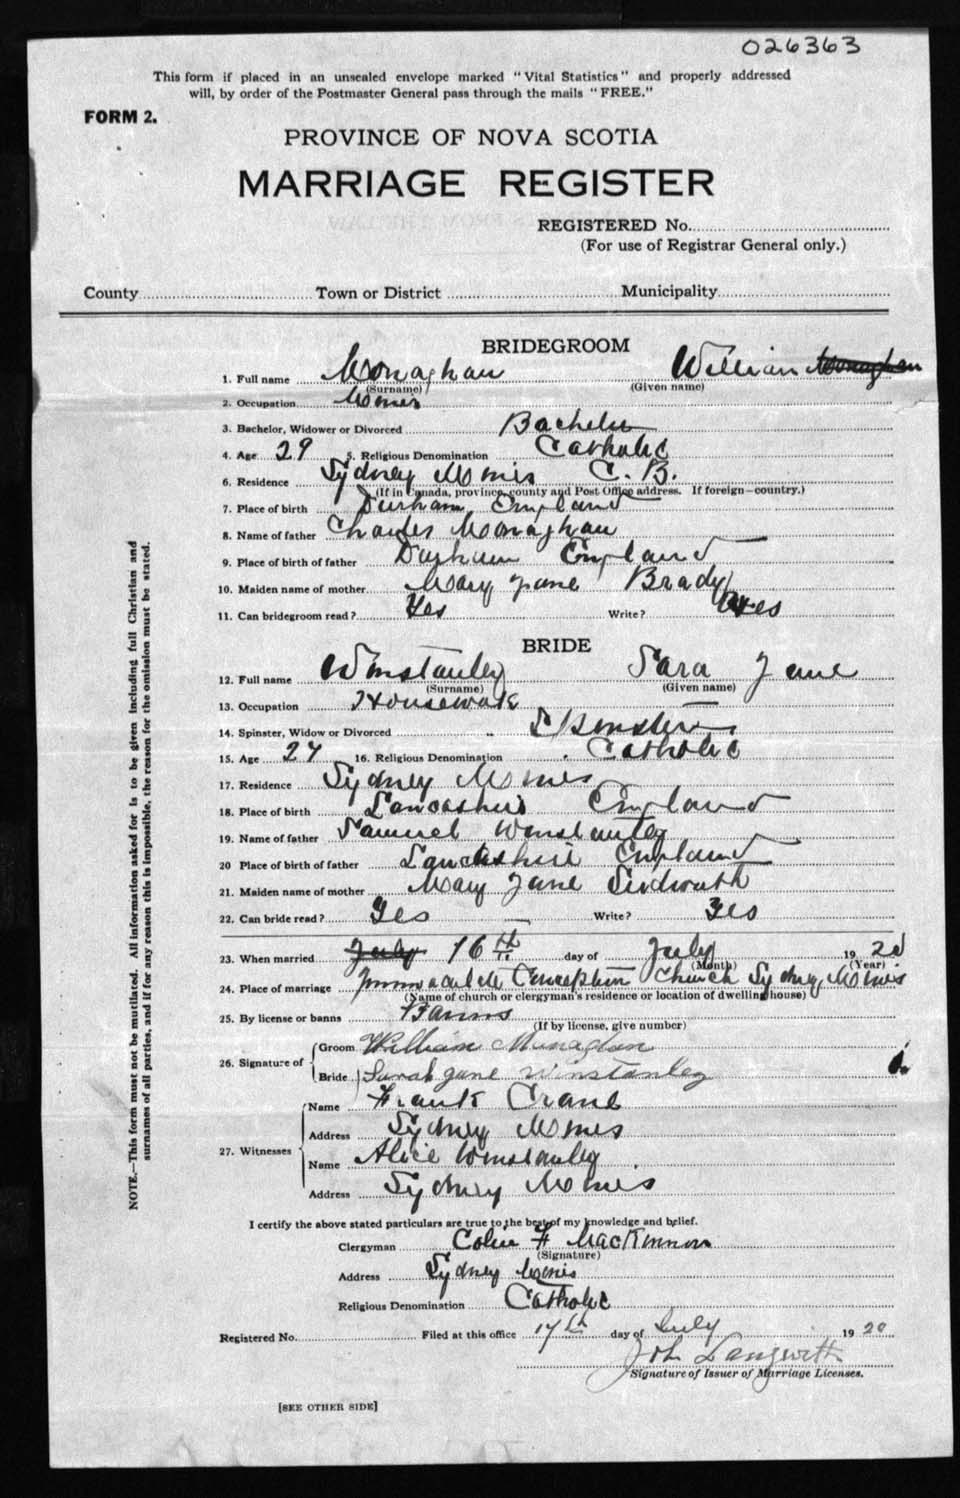 026363
This form if placed in an unsealed envelope marked "Vital Statistics" and properly addressed
will, by order of the Postmaster General pass through the mails "FREE."
FORM 2.
PROVINCE OF NOVA SCOTIA
MARRIAGE REGISTER
REGISTERED No.
(For use of Registrar General only.)
County Town or District Municipality
BRIDEGROOM
1. Full name Monaghan William Monaghan
(Surname) (Given name)
2. Occupation Miner
3. Bachelor, Widower or Divorced Bachelor
4. Age 29 5. Religious Denomination Catholic
6. Residence Sydney Mines C. B.
(If in Canada, province, county and Post Office address. If foreign—country.)
7. Place of birth Durham England
8. Name of father Charles Monaghan
9. Place of birth of father Durham England
10. Maiden name of mother Mary Jane Brady
11. Can bridegroom read? Yes Write? Yes
BRIDE
12. Full name Winstanley Sara Jane
(Surname) (Given name)
13. Occupation Housework
14. Spinster, Widow or Divorced Spinster
15. Age 27 16. Religious Denomination Catholic
17. Residence Sydney Mines
18. Place of birth Lancashire England
19. Name of father Samuel Winstanley
20 Place of birth of father Lancashire England
21. Maiden name of mother Mary Jane
22. Can bride read? Yes Write? Yes
23. When married July 16th day of July 1920
(Month) (Year)
24. Place of marriage Immaculate Conception Church Sydney Mines
(Name of church or clergyman's residence or location of dwelling house)
25. By license or banns Banns
(If by license, give number)
26. Signature of Groom William Monaghan
Bride Sarah Jane Winstanley
27. Witnesses Name Frank Crane
Address Sydney Mines
Name Alice Winstanley
Address Sydney Mines
I certify the above stated particulars are true to the best of my knowledge and belief.
Clergyman Colin F MacKinnon
(Signature)
Address Sydney Mines
Religious Denomination Catholic
Registered No. Filed at this office 17th day of July 1920
Joh Langwith
Signature of Issuer of Marriage Licenses.
[SEE OTHER SIDE]
NOTE.—This form must not be mutilated. All information asked for is to be given including full Christian and
surnames of all parties, and if for any reason this is impossible, the reason for the omission must be stated.